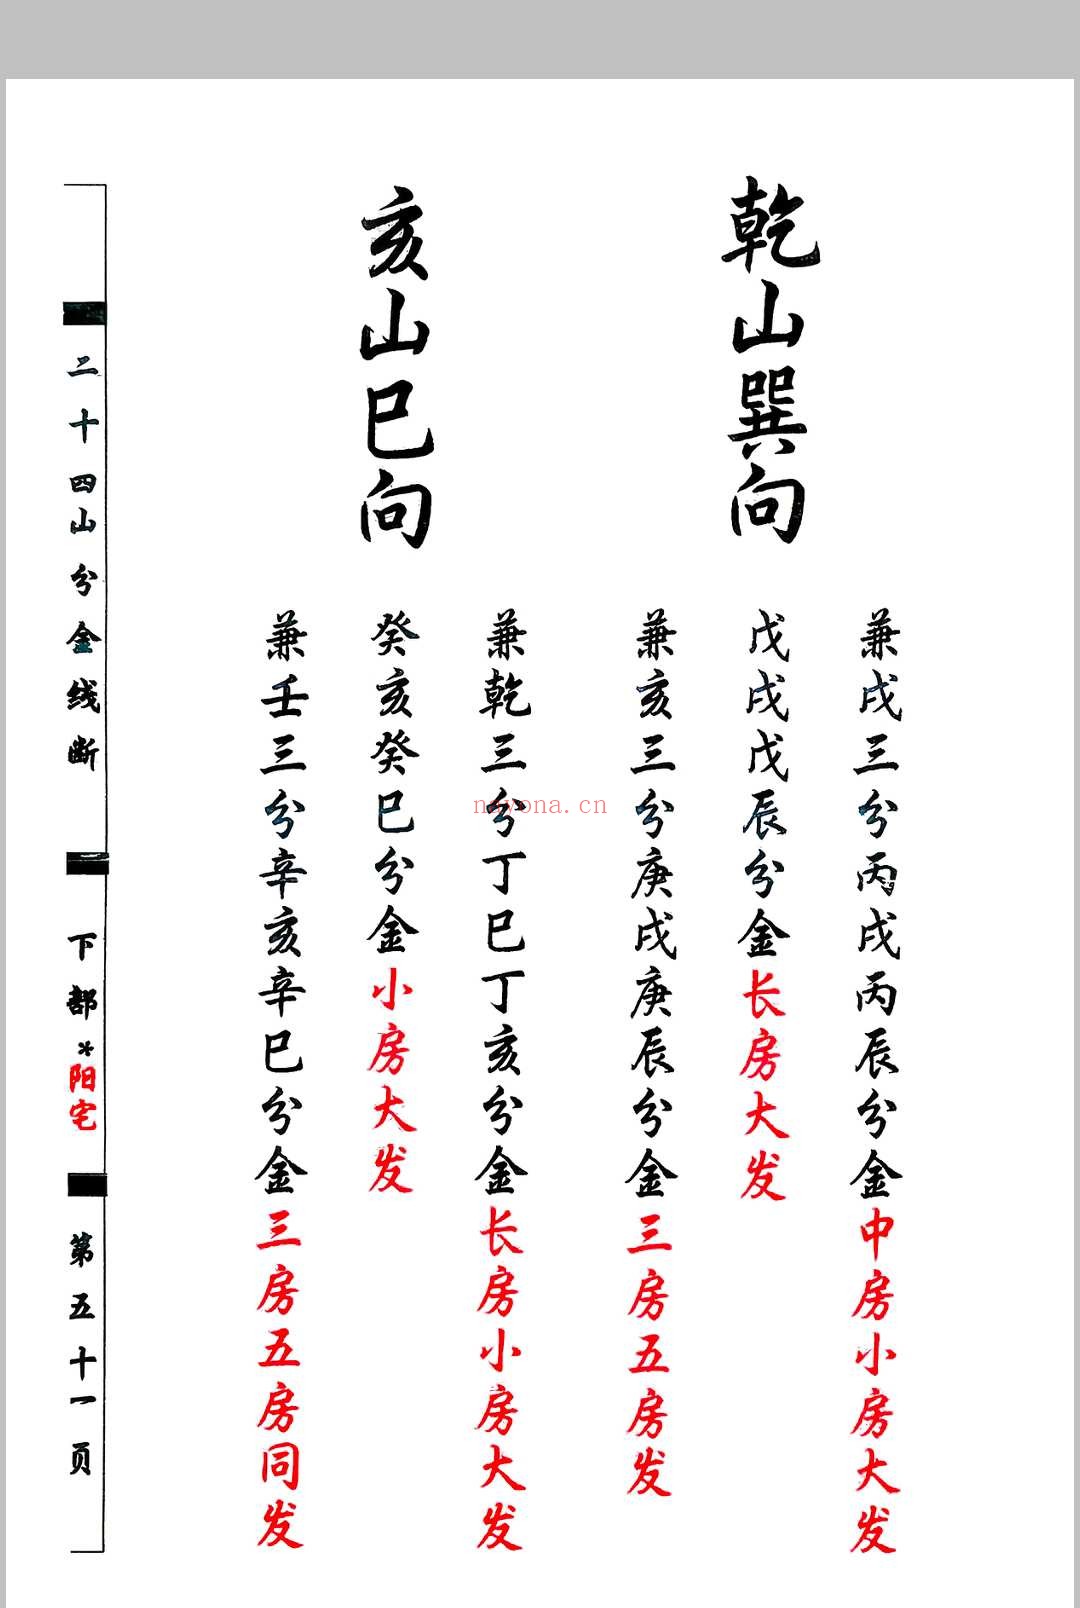 乾山巽向
兼戌三分丙戌丙辰分金中房小房大发
戊戌戊辰分金长房大发
兼亥三分庚戌庚辰分金三房五房发
亥山巳向
兼乾三分丁巳丁亥分金长房小房大发
癸亥癸巳分金小房大发
兼壬三分辛亥辛巳分金三房五房同发
二十四山分金线断
下部*阳宅
第五十一页
nayona.cn